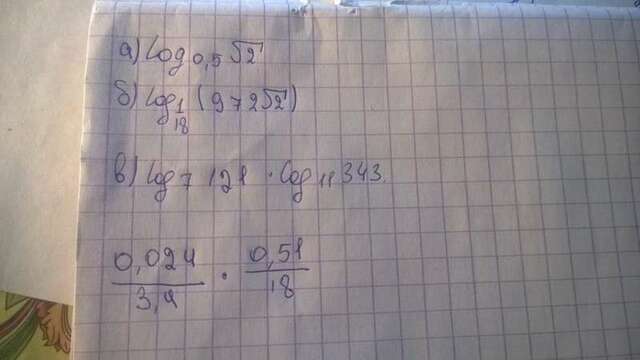 а) log₀,₅ √2
б) log 1/18 (972√2)
в) log₇ 121 · log₁₁ 343.
0,024/3,4 · 0,51/18